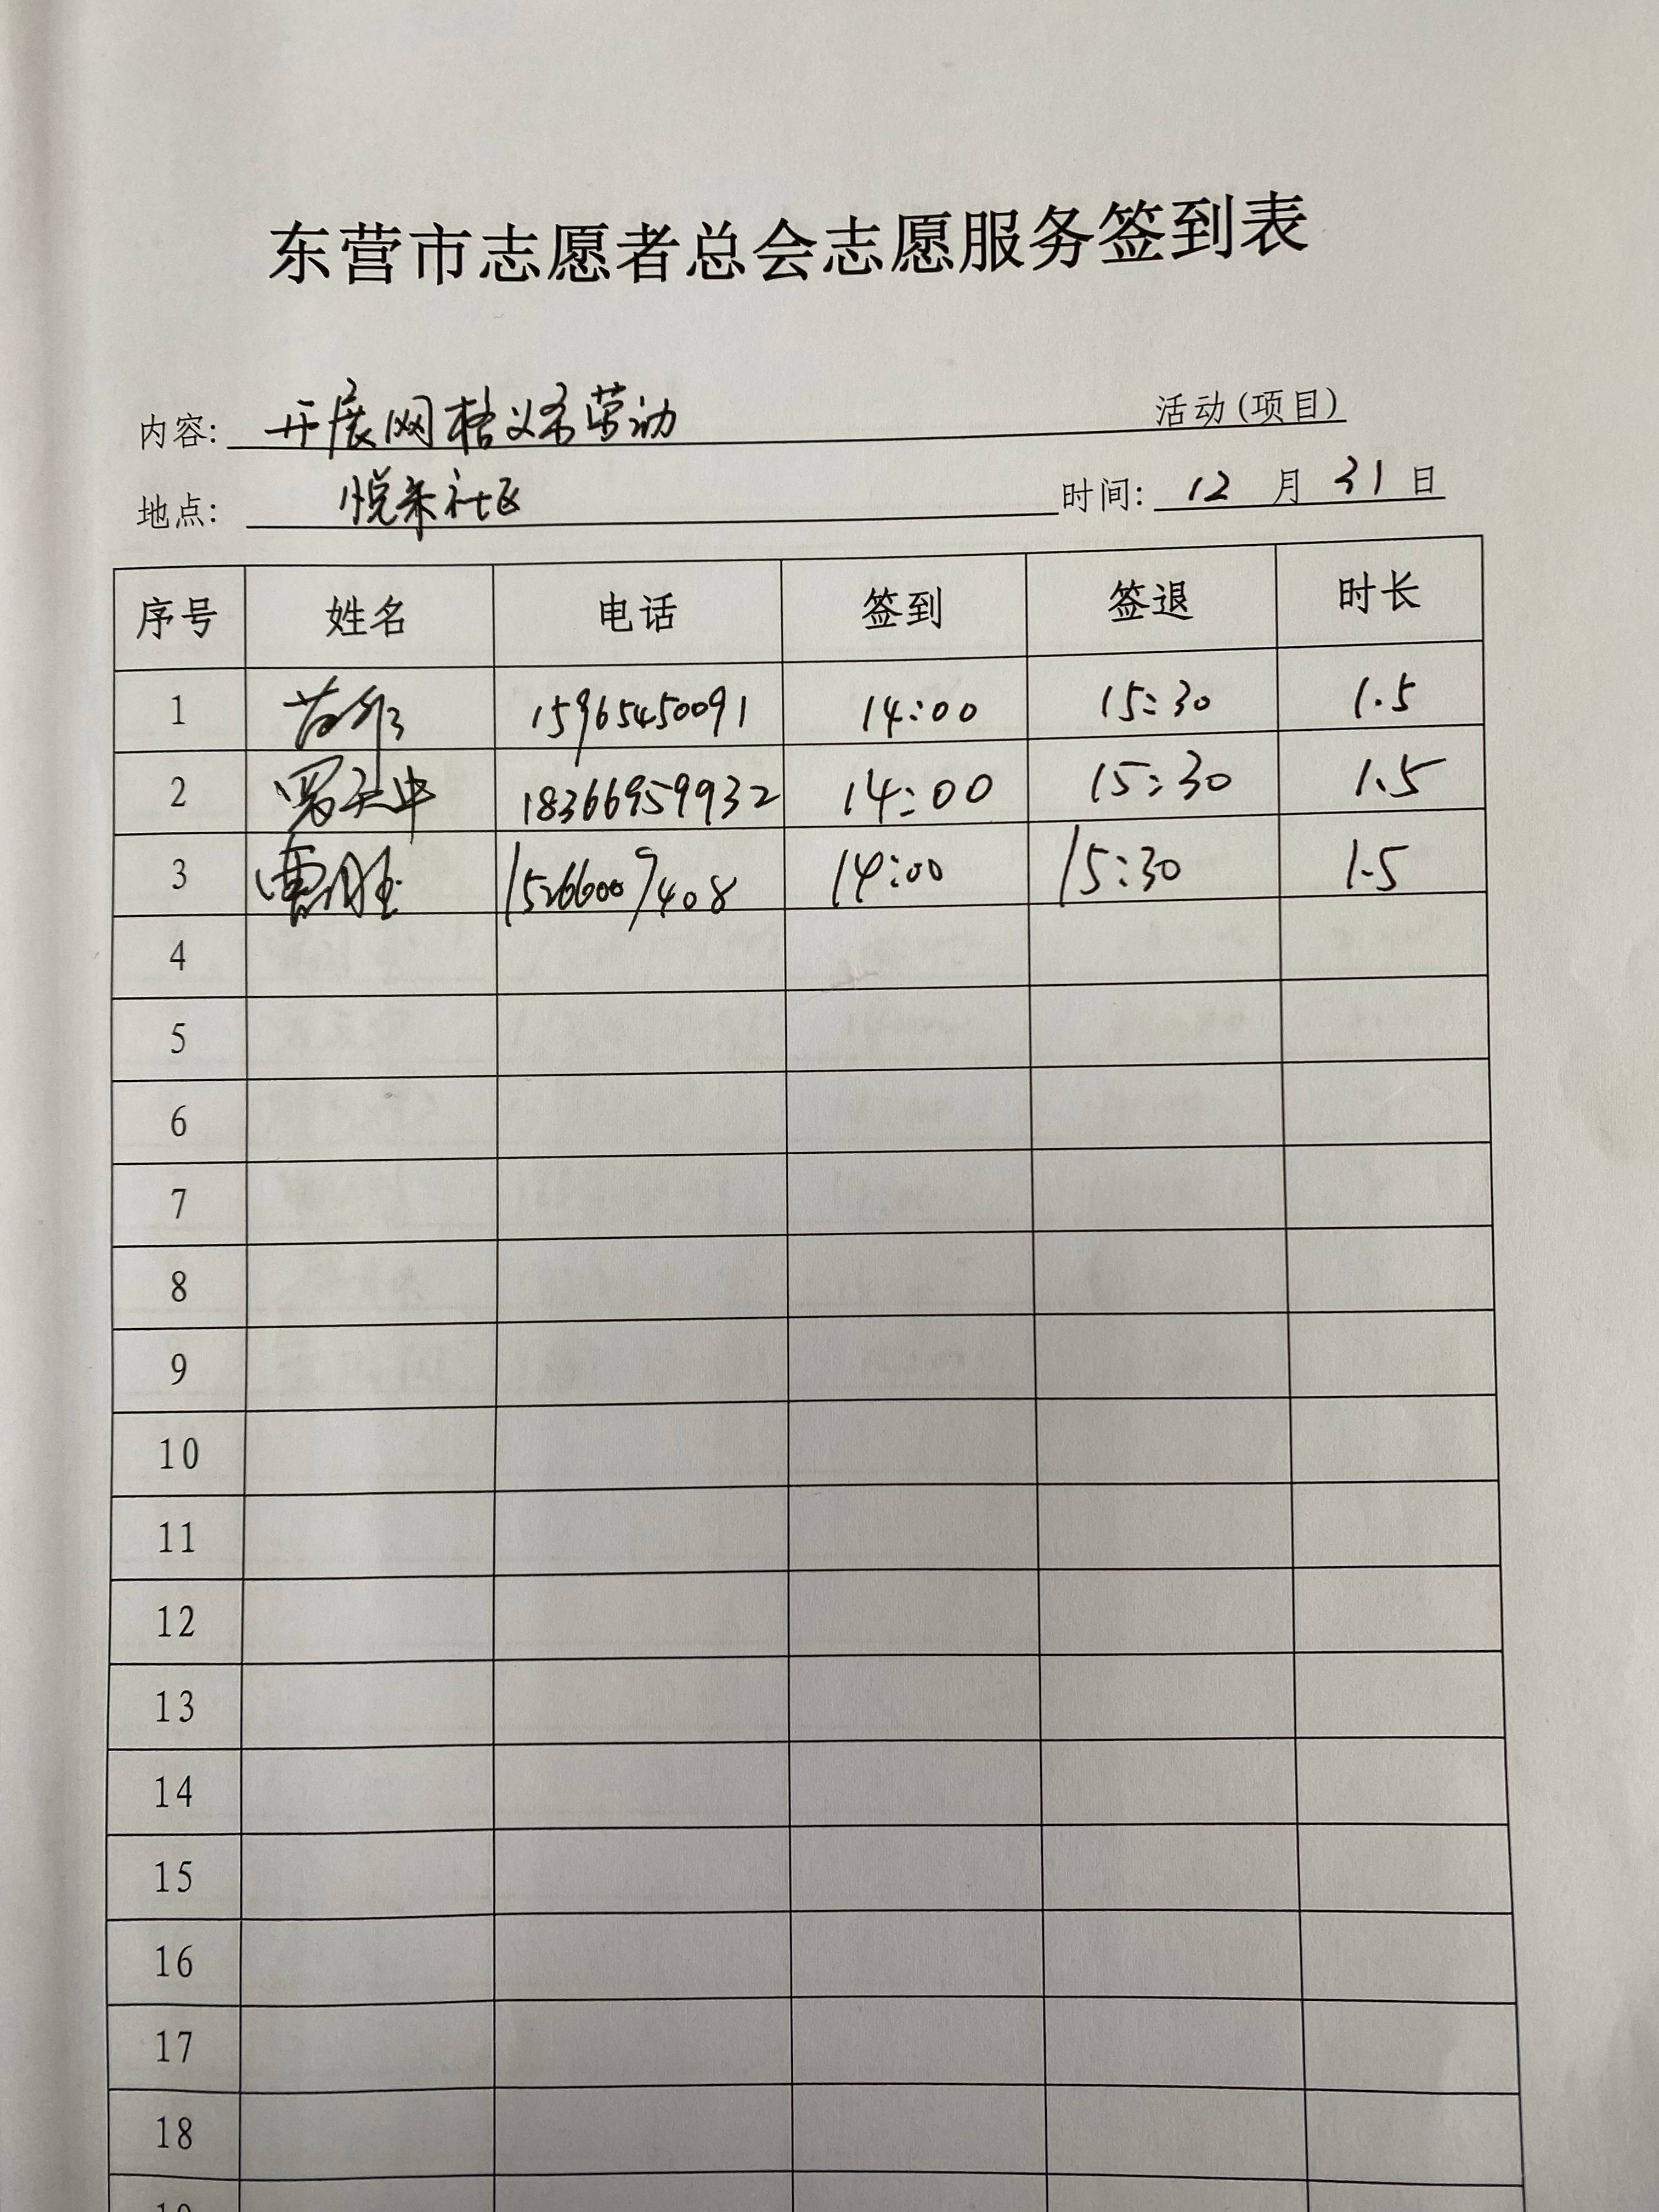 东营市志愿者总会志愿服务签到表
内容: 开展网格义务劳动 活动(项目)
地点: 悦来社区 时间: 12 月 31 日
序号 姓名 电话 签到 签退 时长
1 15965450091 14:00 15:30 1.5
2 罗天中 18366959932 14:00 15:30 1.5
3 曹胜 15266007408 14:00 15:30 1.5
4
5
6
7
8
9
10
11
12
13
14
15
16
17
18